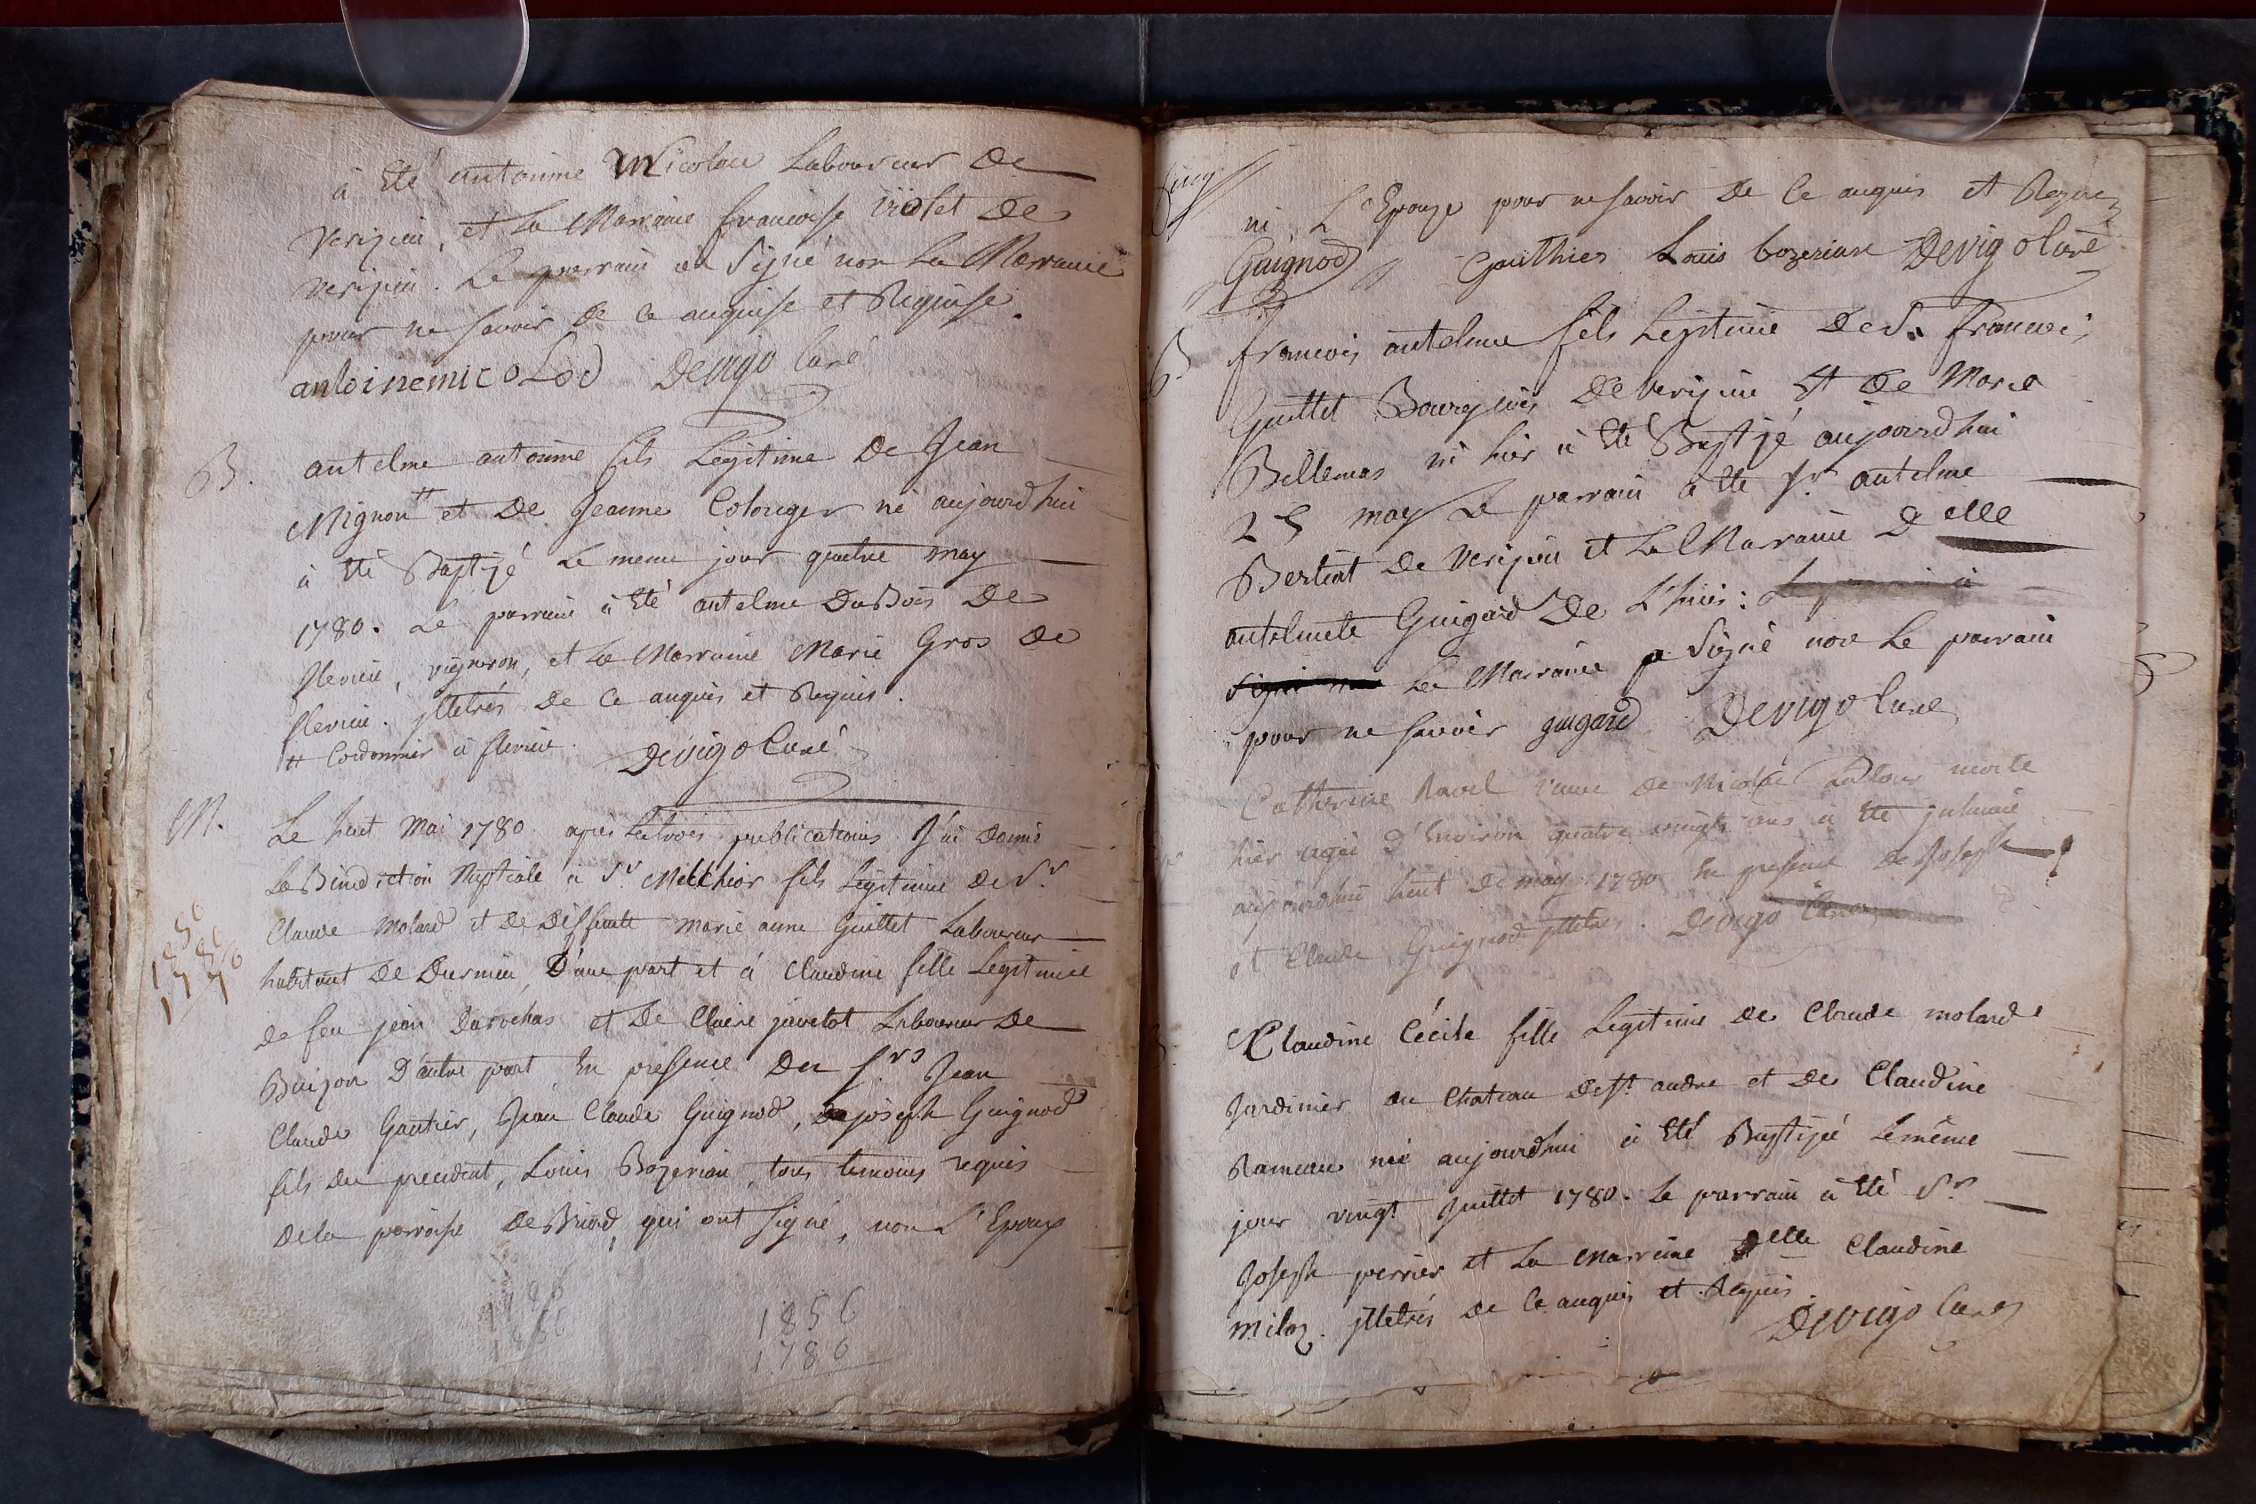 à Eté antoinne Nicolau Laboureur De
Verizieu, et La Marraine francoise violet De
verizieu. Le parrain a Signé non La Marraine
pour ne Savoir de ce anquise et Requise.
antoinemicolod Devigo Curé
B. antelme antoinne fils Legitime De Jean
Mignon # et De Jeanne Colonger né aujourd'hui
à Eté Baptizé Le meme jour quatre may
1780. Le parrain à Eté antelme DuBois De
flevieu, vigneron, et La Marraine Marie Gros De
flevieu. jlletrés De Ce anquis et Requis.
# Cordonnier à flevieu. Devigo Curé
M. Le huit Mai 1780 apres Les trois publications J'ai Donné
La Benediction Nuptiale à Sr. Melchior fils Legitime De Sr.
Claude Molard et De Deffunte Marie anne Guillet Laboureur
habitant De Dermieu, D'une part et à Claudine fille Legitime
de feu jean Darochas et De Claire javelot Laboureur De
Buizon D'autre part En presence Des Srs Jean
Claude Gautier, Jean Claude Guignod, joseph Guignod
fils du precedent, Louis Bozerian, tous temoins requis
De la parroisse De Briord, qui ont signé, non L'Epoux
1856
1786
1 7 0
1786
1856
1856
1786
ni L'Epouze pour ne savoir De Ce anquis et Requis
Guignod Gauthier Louis bozerian Devigo Curé
B. francois antelme fils Legitime De Sr. Francois
Guillet Bourgeois De Verizieu Et De Marie
Billemas né hier à Eté Baptizé aujourdhui
25 may Le parrain à Ete Sr antelme
Bertiat De Verizieu et La Marraine Delle
antelmete Guigard De L'huis: Le parrain à
Signé non La Marraine a Signé non Le parrain
pour ne Savoir guigard Devigo Curé
Catherine Ravel veuve De Nicolas Ladour morte
hier agée D'Environ quatre vingts ans à Ete jnhumée
aujourdhui huit De may 1780 En presence De Joseph
et Claude Guignod jlletrés. Devigo Curé
Claudine Cécile fille Legitime De Claude molard
Jardinier au Chateau De St. andre et De Claudine
Rameau née aujourdhui à Eté Baptizée Le même
jour vingt Juillet 1780. Le parrain à Eté Sr
Joseph perrier et La Marraine Delle Claudine
miloz. jlletrés De Ce anquis et Requis.
Devigo Curé